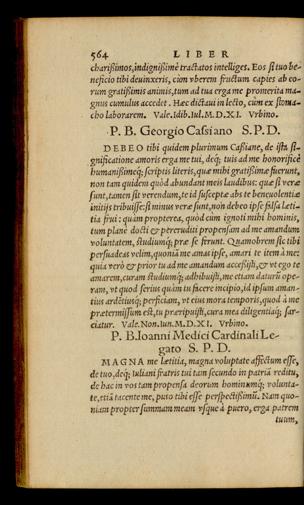 564 LIBER
charißimos, indignißimè tractatos intelliges. Eos si tuo be-
neficio tibi deuinxeris, cùm vberem fructum capies ab eo-
rum gratißimis animis, tum ad tua erga me promerita ma-
gnus cumulus accedet. Hæc dictaui in lecto, cùm ex stoma-
cho laborarem. Vale. Idib. Iul. M. D. XI. Vrbino.
P. B. Georgio Cassiano S. P. D.
DEBEO tibi quidem plurimum Caßiane, de ista si-
gnificatione amoris erga me tui, deq; tuis ad me honorificè
humanißimeq; scriptis literis, quæ mihi gratißimæ fuerunt,
non tam quidem quòd abundant meis laudibus: quæ si veræ
sunt, tamen sit verendum, te id suscepta abs te beneuolentiæ
initijs tribuisse: si minus veræ sunt, non debeo ipse falsa læti-
tia frui: quàm propterea, quòd cùm ignoti mihi hominis,
tum planè docti & pereruditi propensam ad me amandum
voluntatem, studiumq; præ se ferunt. Quamobrem sic tibi
persuadeas velim, quoniã me amas ipse, amari te item à me:
quia verò & prior tu ad me amandum accessisti, & vt ego te
amarem, curam studiumq; adhibuisti, me etiam daturũ ope-
ram, vt quod serius quàm tu facere incipio, id ipsum aman-
tius ardẽtiusq; perficiam, vt eius mora temporis, quod à me
prætermissum est, tu præripuisti, cura mea diligentiaq; sar-
ciatur. Vale. Non. Iun. M. D. XI. Vrbino.
P. B. Ioanni Medici Cardinali Le-
gato S. P. D.
MAGNA me Lætitia, magna voluptate affectum esse,
de tuo, deq; Iuliani fratris tui tam secundo in patriã reditu,
de hac in vos tam propensa deorum hominumq; volunta-
te, etiã tacente me, puto tibi esse perspectißimũ. Nam quo-
niam propter summam meam vsque à puero, erga patrem
tuum,